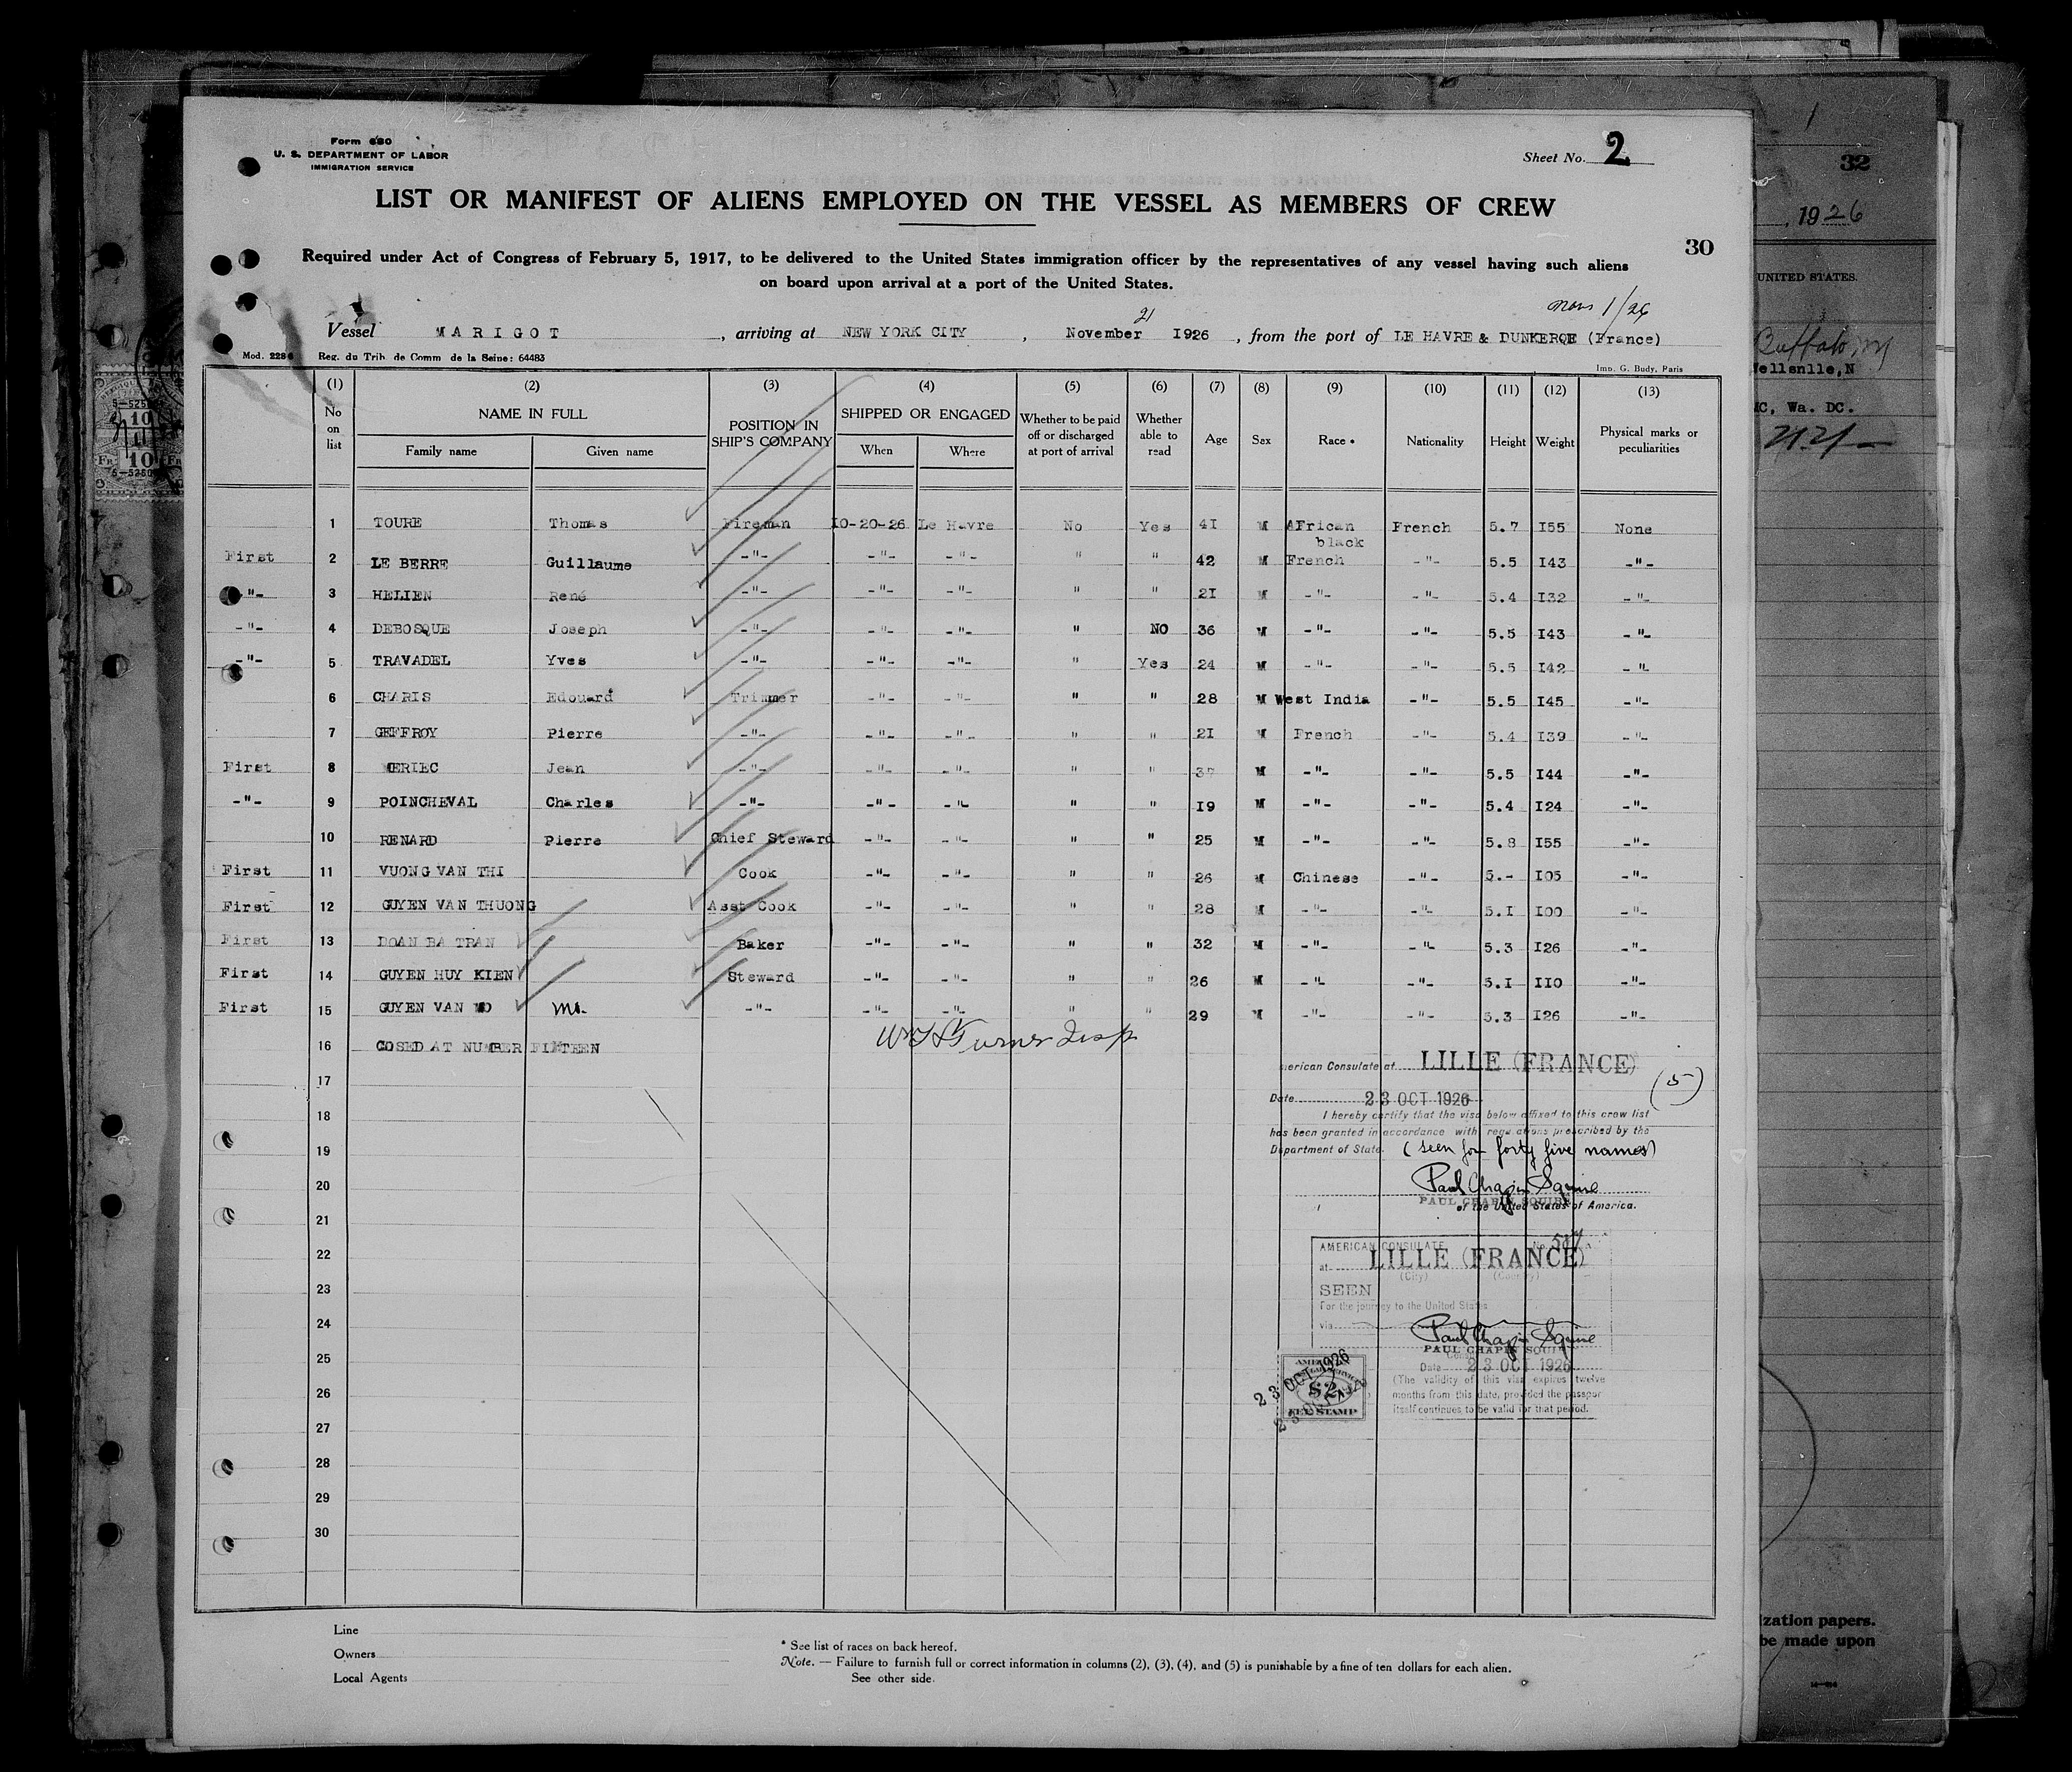 Form 680
U. S. DEPARTMENT OF LABOR
IMMIGRATION SERVICE
Sheet No. 2
LIST OR MANIFEST OF ALIENS EMPLOYED ON THE VESSEL AS MEMBERS OF CREW
30
Required under Act of Congress of February 5, 1917, to be delivered to the United States immigration officer by the representatives of any vessel having such aliens
on board upon arrival at a port of the United States.
Nov 1/26
21
Vessel MARIGOT , arriving at NEW YORK CITY , November 1926 , from the port of LE HAVRE & DUNKERQE (France)
Mod. 2286 Reg. du Trib. de Comm de la Seine: 64483
Imp. G. Budy, Paris
(1) (2) (3) (4) (5) (6) (7) (8) (9) (10) (11) (12) (13)
No on list NAME IN FULL Family name Given name POSITION IN SHIP'S COMPANY SHIPPED OR ENGAGED When Where Whether to be paid off or discharged at port of arrival Whether able to read Age Sex Race * Nationality Height Weight Physical marks or peculiarities
1 TOURE Thomas Fireman 10-20-26 Le Havre No Yes 41 M African black French 5.7 155 None
First 2 LE BERRE Guillaume -"- -"- -"- " " 42 M French -"- 5.5 143 -"-
-"- 3 HELIEN René -"- -"- -"- " " 21 M -"- -"- 5.4 132 -"-
-"- 4 DEBOSQUE Joseph -"- -"- -"- " NO 36 M -"- -"- 5.5 143 -"-
-"- 5 TRAVADEL Yves -"- -"- -"- " Yes 24 M -"- -"- 5.5 142 -"-
6 CHARIS Edouard Trimmer -"- -"- " " 28 M West India -"- 5.5 145 -"-
7 GEFFROY Pierre -"- -"- -"- " " 21 M French -"- 5.4 139 -"-
First 8 Jean -"- -"- -"- " " M -"- -"- 5.5 144 -"-
-"- 9 POINCHEVAL Charles -"- -"- -"- " " 19 M -"- -"- 5.4 124 -"-
10 RENARD Pierre Chief Steward -"- -"- " " 25 M -"- -"- 5.8 155 -"-
First 11 VUONG VAN THI Cook -"- -"- " " 26 M Chinese -"- 5.- 105 -"-
First 12 GUYEN VAN THUONG Asst Cook -"- -"- " " 28 M -"- -"- 5.1 100 -"-
First 13 DOAN BA TRAN Baker -"- -"- " " 32 M -"- -"- 5.3 126 -"-
First 14 GUYEN HUY KIEN Steward -"- -"- " " 26 M -"- -"- 5.1 110 -"-
First 15 GUYEN VAN -"- -"- -"- " " 29 M -"- -"- 5.3 126 -"-
16 COSED AT NUMBER FIFTEEN
Turner Insp
17
18
19
20
21
22
23
24
25
26
27
28
29
30
American Consulate at LILLE (FRANCE)
(5)
Date 23 OCT 1926
I hereby certify that the visa below affixed to this crew list
has been granted in accordance with regulations prescribed by the
Department of State. (seen for forty five names)
Paul Chapin Squire
PAUL CHAPIN SQUIRE
of the United States of America.
AMERICAN CONSULATE No.
at LILLE (FRANCE)
(City) (Country)
SEEN
For the journey to the United States
via
Paul Chapin Squire
PAUL CHAPIN SQUIRE
Date 23 OCT 1926
(The validity of this visa expires twelve
months from this date, provided the passport
itself continues to be valid for that period.
AMERICAN
$2
FEE STAMP
23 OCT 1926
Line
Owners
Local Agents
* See list of races on back hereof.
Note. — Failure to furnish full or correct information in columns (2), (3), (4), and (5) is punishable by a fine of ten dollars for each alien.
See other side.
1
32
, 1926
UNITED STATES.
Buffalo, NY
Wellsnlle, N
MC, Wa. DC.
zation papers.
be made upon